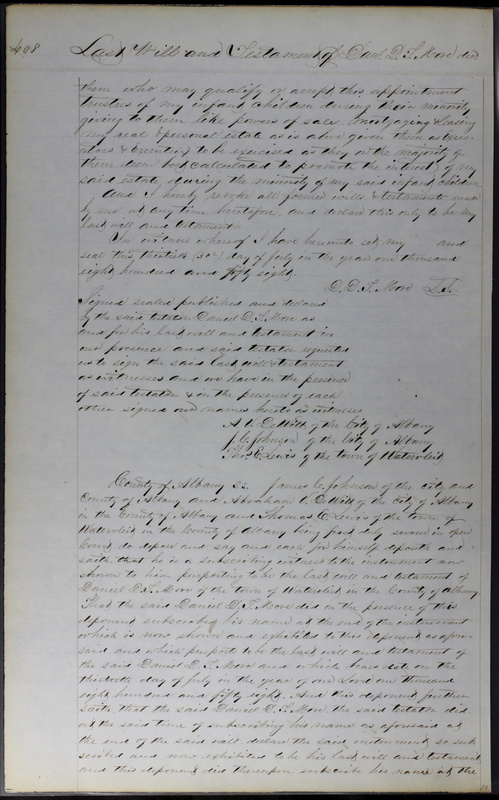 408 Last Will and Testament of Danl D. T. More decd
them who may qualify or accept this appointment
trustees of my infant children during their minority
giving to them like powers of sale mortgaging & leasing
my real & personal estate as is above given them as Exec
utors & Executrix to be exercised as they or the majority of
them deem best calculated to promote the interest of my
said estate during the minority of my said infant children
And I hereby revoke all former wills & testaments made
by me at any time heretofore, and declare this only to be my
last will and testament
In witness whereof I have hereunto set my and
seal this thirtieth (30th) day of July in the year one thousand
eight hundred and fifty eight.
D. D. T. More L.S.
Signed sealed published and declared
by the said testator Daniel D. T. More as
and for his last will and testament in
our presence and said testator requested
us to sign the said last will & testament
as witnesses and we have in the presence
of said testator & in the presence of each
other signed our names hereto as witnesses
A. V. DeWitt of the City of Albany
J. C. Johnson of the City of Albany
Thos. C. Lewis of the town of Watervliet
County of Albany ss. James C. Johnson of the city and
County of Albany and Abraham V. DeWitt of the City of Albany
in the County of Albany and Thomas C. Lewis of the town of
Watervliet in the County of Albany being first duly sworn in open
Court do depose and say and each for himself deposeth and
saith that he is a subscribing witness to the instrument now
shown to him purporting to be the last will and testament of
Daniel D. T. More of the town of Watervliet in the County of Albany
That the said Daniel D. T. More did in the presence of this
deponent subscribe his name at the end of the instrument
which is now shown and exhibited to this deponent as afore
said and which purports to be the last will and testament of
the said Daniel D. T. More and which bears date on the
thirtieth day of July in the year of our Lord one thousand
eight hundred and fifty eight. And this deponent further
saith, that the said Daniel D. T. More, the said testator did
at the said time of subscribing his name as aforesaid at
the end of the said will, declare the said instrument so sub
scribed and now exhibited to be his last will and testament
and this deponent did thereupon subscribe his name at the